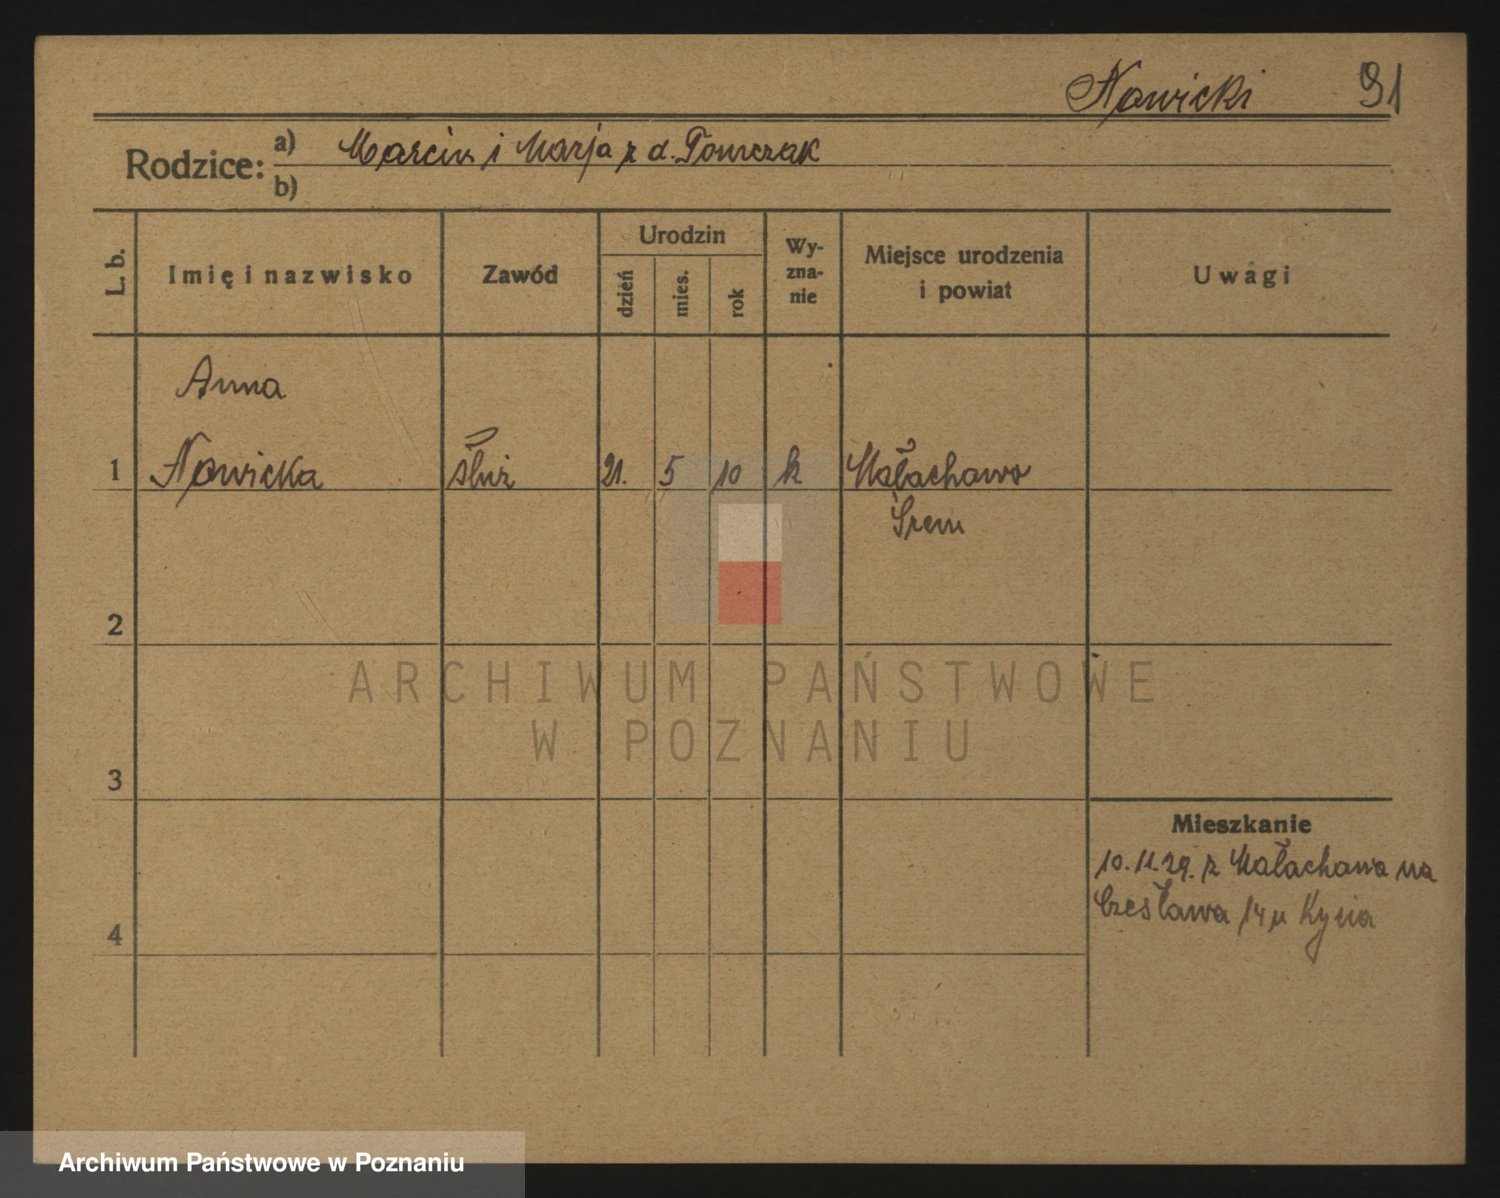 Nowicki 91
Rodzice: a) Marcin i Marja z d. Tomczak
b)
L. b.
Imię i nazwisko
Zawód
Urodzin
dzień
mies.
rok
Wy-
zna-
nie
Miejsce urodzenia
i powiat
Uwagi
Anna
1 Nowicka służ 21. 5 10 k Małachowo
Śrem
2
3
4
Mieszkanie
10.11.29. z Małachowa na
Czesława 14 u
ARCHIWUM PAŃSTWOWE
W POZNANIU
Archiwum Państwowe w Poznaniu